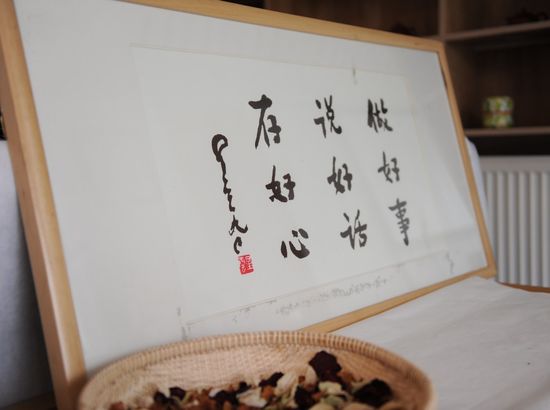 做好事
说好话
存好心